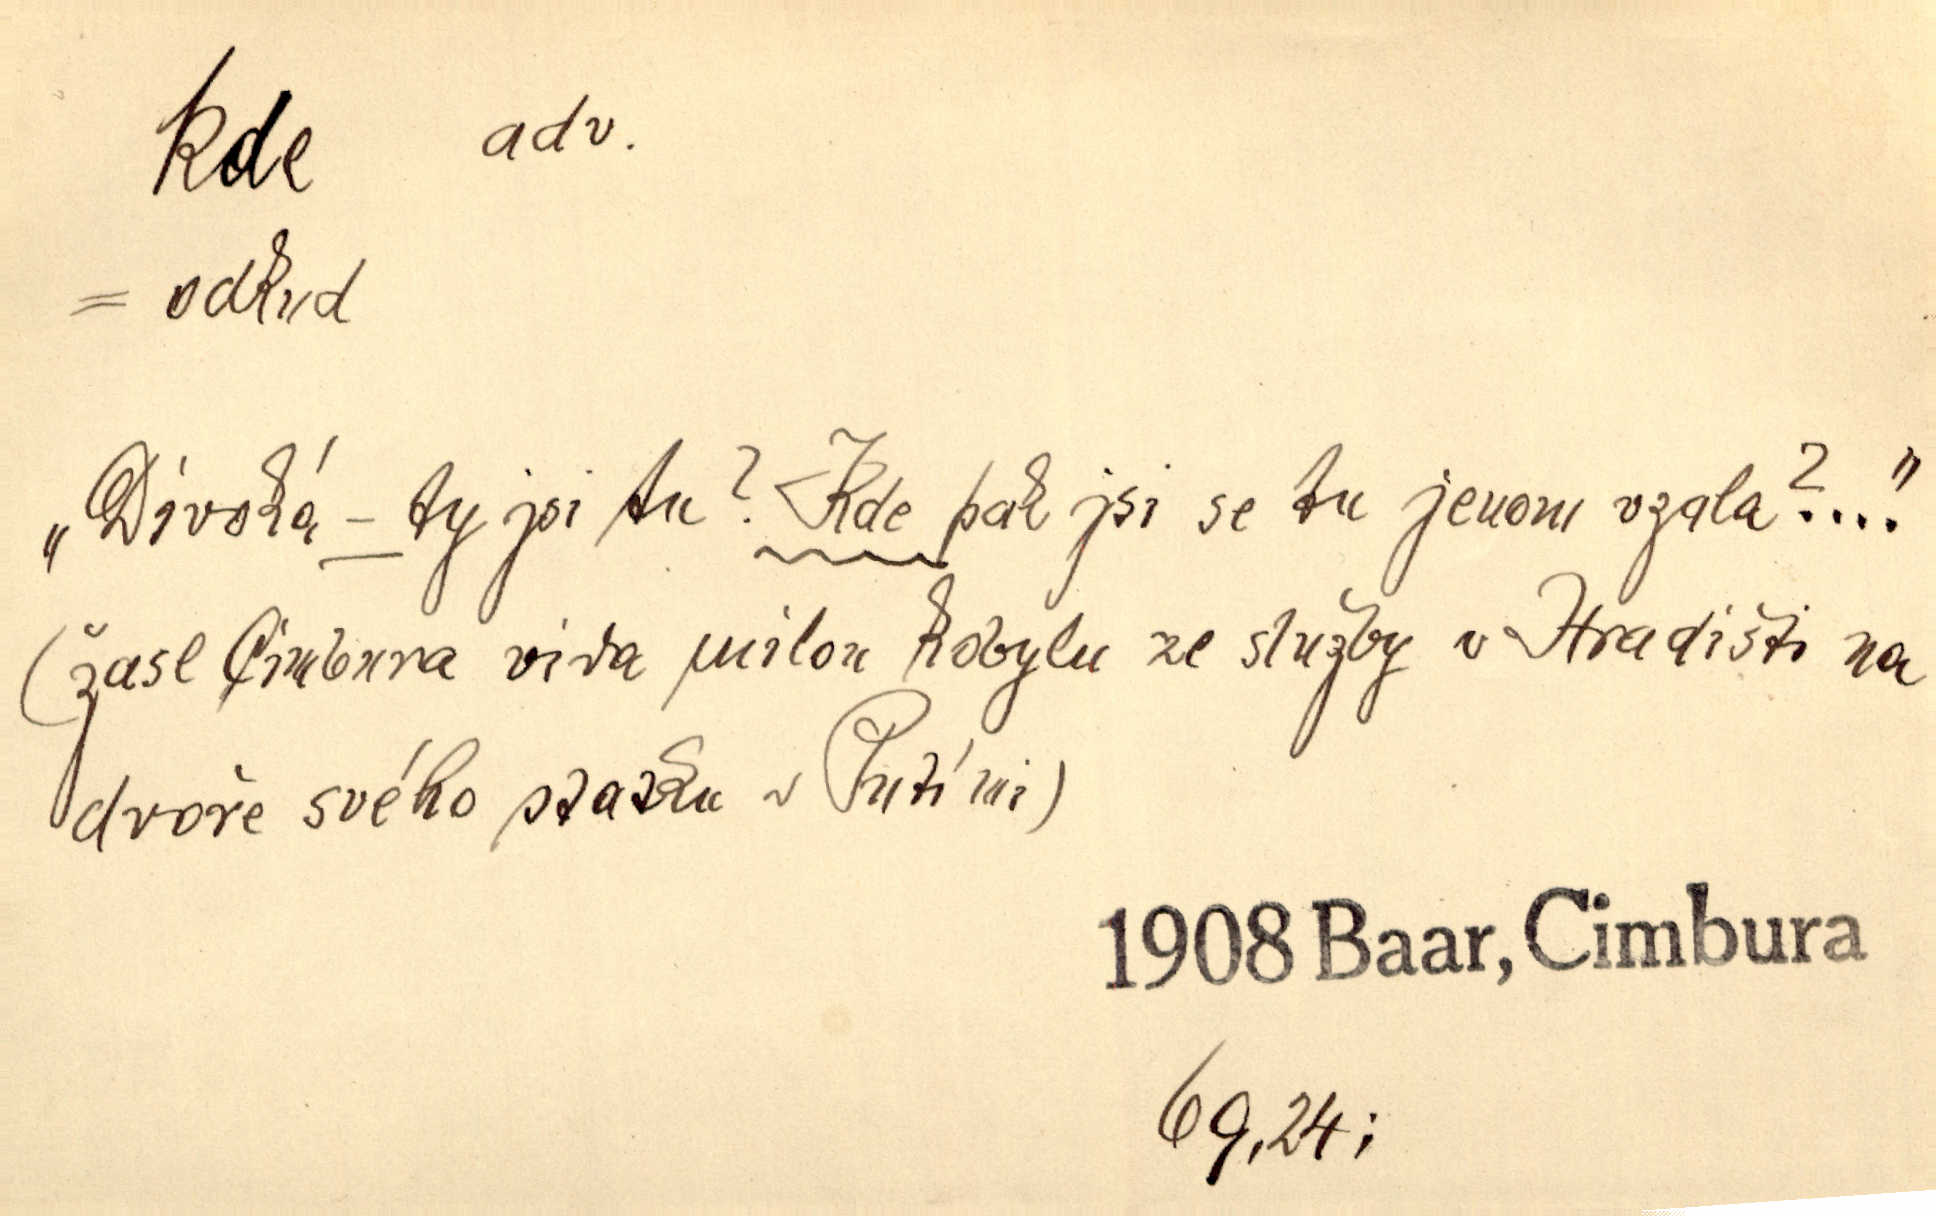 kde adv.
= odkud
„Divoká – ty jsi tu? Kde pak jsi se tu jenom vzala?...."
(žasl Cimbura vida milou kobylu ze služby v Hradišti na
dvoře svého statku v Putími)
1908 Baar, Cimbura
69,24;